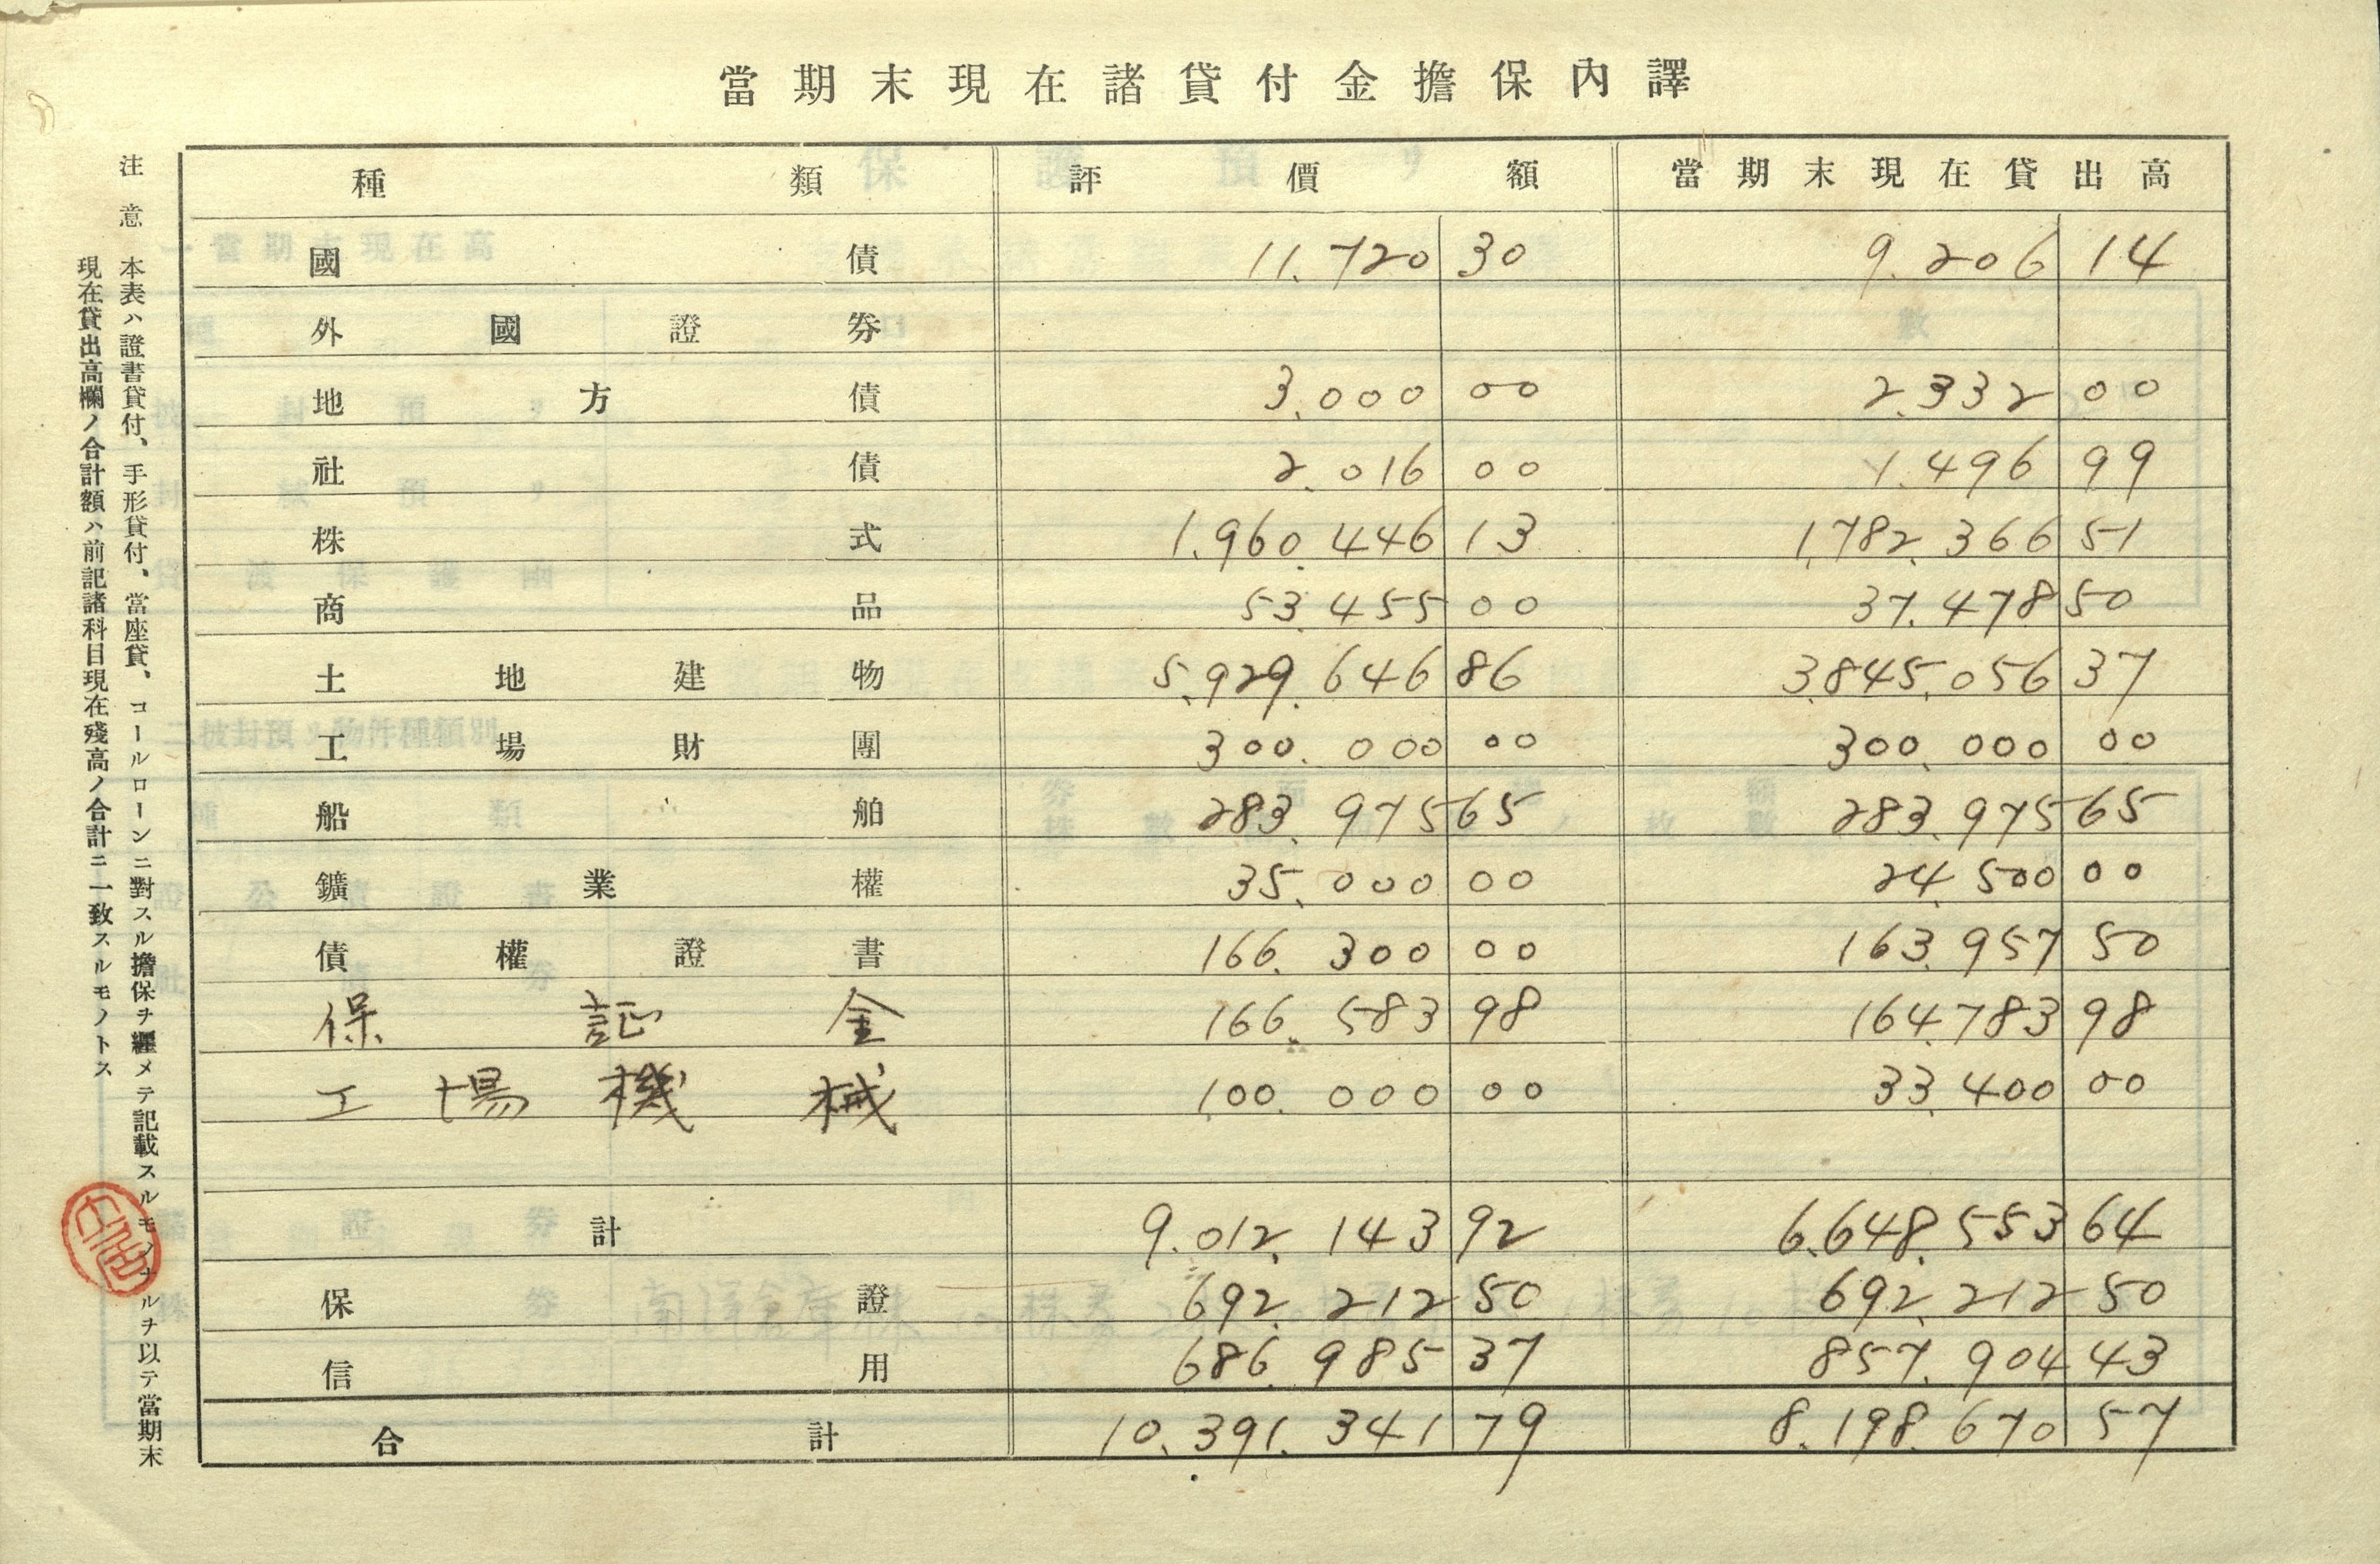 當期末現在諸貸付金擔保內譯
種類 評價額 當期末現在貸出高
國債 11.720 30 9.206 14
外國證券
地方債 3.000 00 2.332 00
社債 2.016 00 1.496 99
株式 1.960.446 13 1.782.366 51
商品 53.455 00 37.478 50
土地建物 5.929.646 86 3.845.056 37
工場財團 300.000 00 300.000 00
船舶 283.975 65 283.975 65
鑛業權 35.000 00 24.500 00
債權證書 166.300 00 163.957 50
保証金 166.583 98 164.783 98
工場機械 100.000 00 33.400 00
計 9.012.143 92 6.648.553 64
保證 692.212 50 692.212 50
信用 686.985 37 857.904 43
合計 10.391.341 79 8.198.670 57
注意 本表ハ證書貸付、手形貸付、當座貸、コールローンニ對スル擔保ヲ纒メテ記載スルモノナルヲ以テ當期末
現在貸出高欄ノ合計額ハ前記諸科目現在殘高ノ合計ニ一致スルモノトス